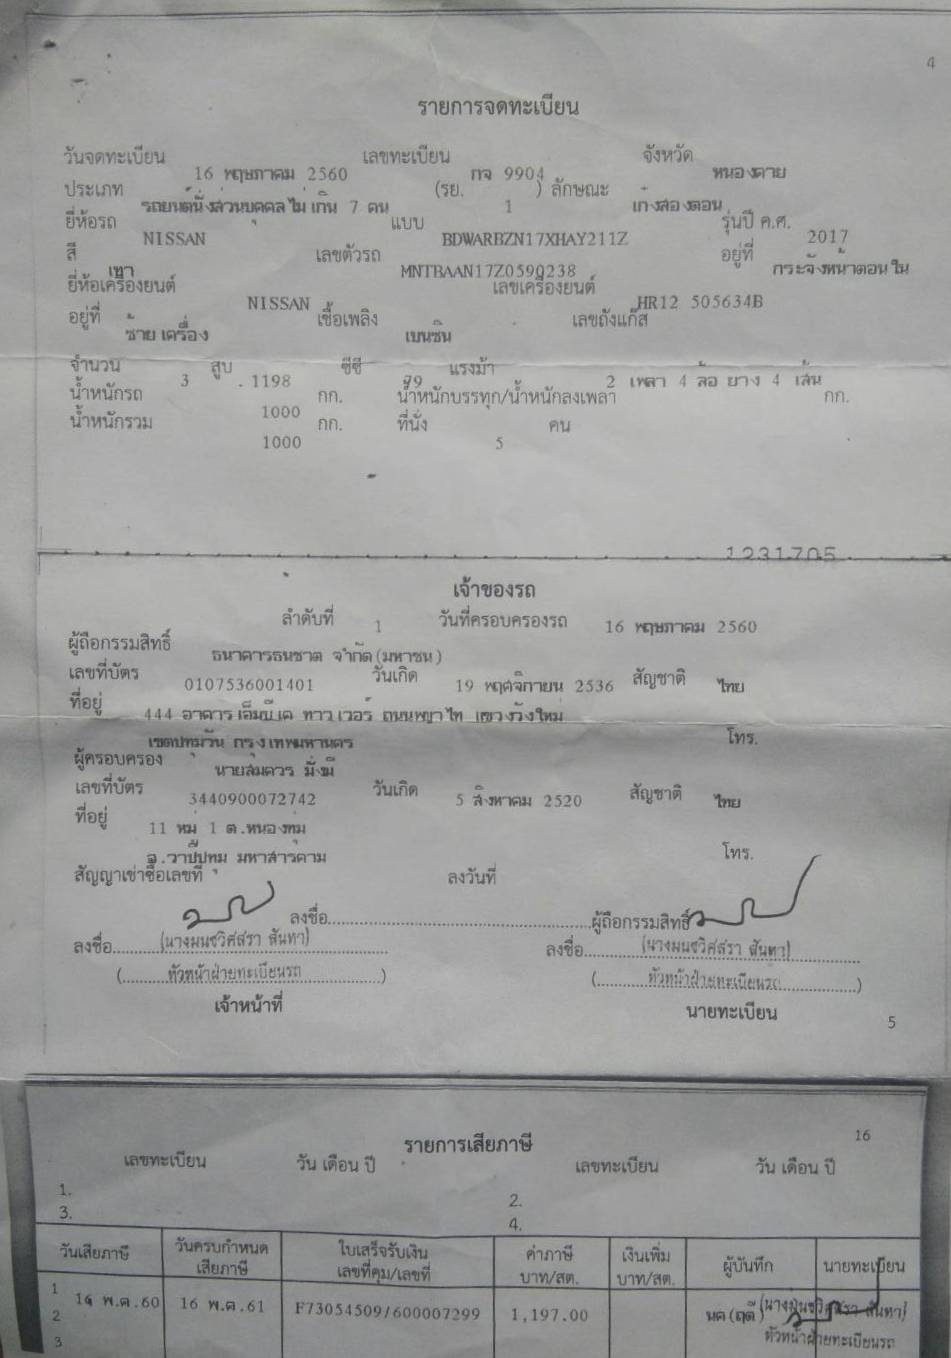 4
รายการจดทะเบียน
วันจดทะเบียน 16 พฤษภาคม 2560 เลขทะเบียน กจ 9904 จังหวัด หนองคาย
ประเภท รถยนต์นั่งส่วนบุคคลไม่เกิน 7 คน (รย. 1 ) ลักษณะ เก๋งสองตอน
ยี่ห้อรถ NISSAN แบบ BDWARBZN17XHAY211Z รุ่นปี ค.ศ. 2017
สี เทา เลขตัวรถ MNTBAAN17Z0590238 อยู่ที่ กระจังหน้าตอนใน
ยี่ห้อเครื่องยนต์ NISSAN เลขเครื่องยนต์ HR12 505634B
อยู่ที่ ซ้ายเครื่อง เชื้อเพลิง เบนซิน เลขถังแก๊ส
จำนวน 3 สูบ . 1198 ซีซี 79 แรงม้า 2 เพลา 4 ล้อ ยาง 4 เส้น
น้ำหนักรถ 1000 กก. น้ำหนักบรรทุก/น้ำหนักลงเพลา กก.
น้ำหนักรวม 1000 กก. ที่นั่ง 5 คน
1231705
เจ้าของรถ
ลำดับที่ 1 วันที่ครอบครองรถ 16 พฤษภาคม 2560
ผู้ถือกรรมสิทธิ์ ธนาคารธนชาต จำกัด(มหาชน)
เลขที่บัตร 0107536001401 วันเกิด 19 พฤศจิกายน 2536 สัญชาติ ไทย
ที่อยู่ 444 อาคารเอ็มบีเค ทาวเวอร์ ถนนพญาไท แขวงวังใหม่
เขตปทุมวัน กรุงเทพมหานคร โทร.
ผู้ครอบครอง นายสมควร มั่งมี
เลขที่บัตร 3440900072742 วันเกิด 5 สิงหาคม 2520 สัญชาติ ไทย
ที่อยู่ 11 หมู่ 1 ต.หนองทุ่ม
อ.วาปีปทุม มหาสารคาม โทร.
สัญญาเช่าซื้อเลขที่ ลงวันที่
ลงชื่อ ผู้ถือกรรมสิทธิ์
ลงชื่อ (นางมนชวิศสรา สันทา) ลงชื่อ (นางมนชวิศสรา สันทา)
( หัวหน้าฝ่ายทะเบียนรถ ) ( หัวหน้าฝ่ายทะเบียนรถ )
เจ้าหน้าที่ นายทะเบียน
5
รายการเสียภาษี 16
เลขทะเบียน วัน เดือน ปี เลขทะเบียน วัน เดือน ปี
1. 2.
3. 4.
วันเสียภาษี วันครบกำหนดเสียภาษี ใบเสร็จรับเงิน เลขที่คุม/เลขที่ ค่าภาษี บาท/สต. เงินเพิ่ม บาท/สต. ผู้บันทึก นายทะเบียน
1 16 พ.ค.60 16 พ.ค.61 F73054509/600007299 1,197.00 นค(ฤดี) (นางมนชวิศสรา สันทา)
2 หัวหน้าฝ่ายทะเบียนรถ
3